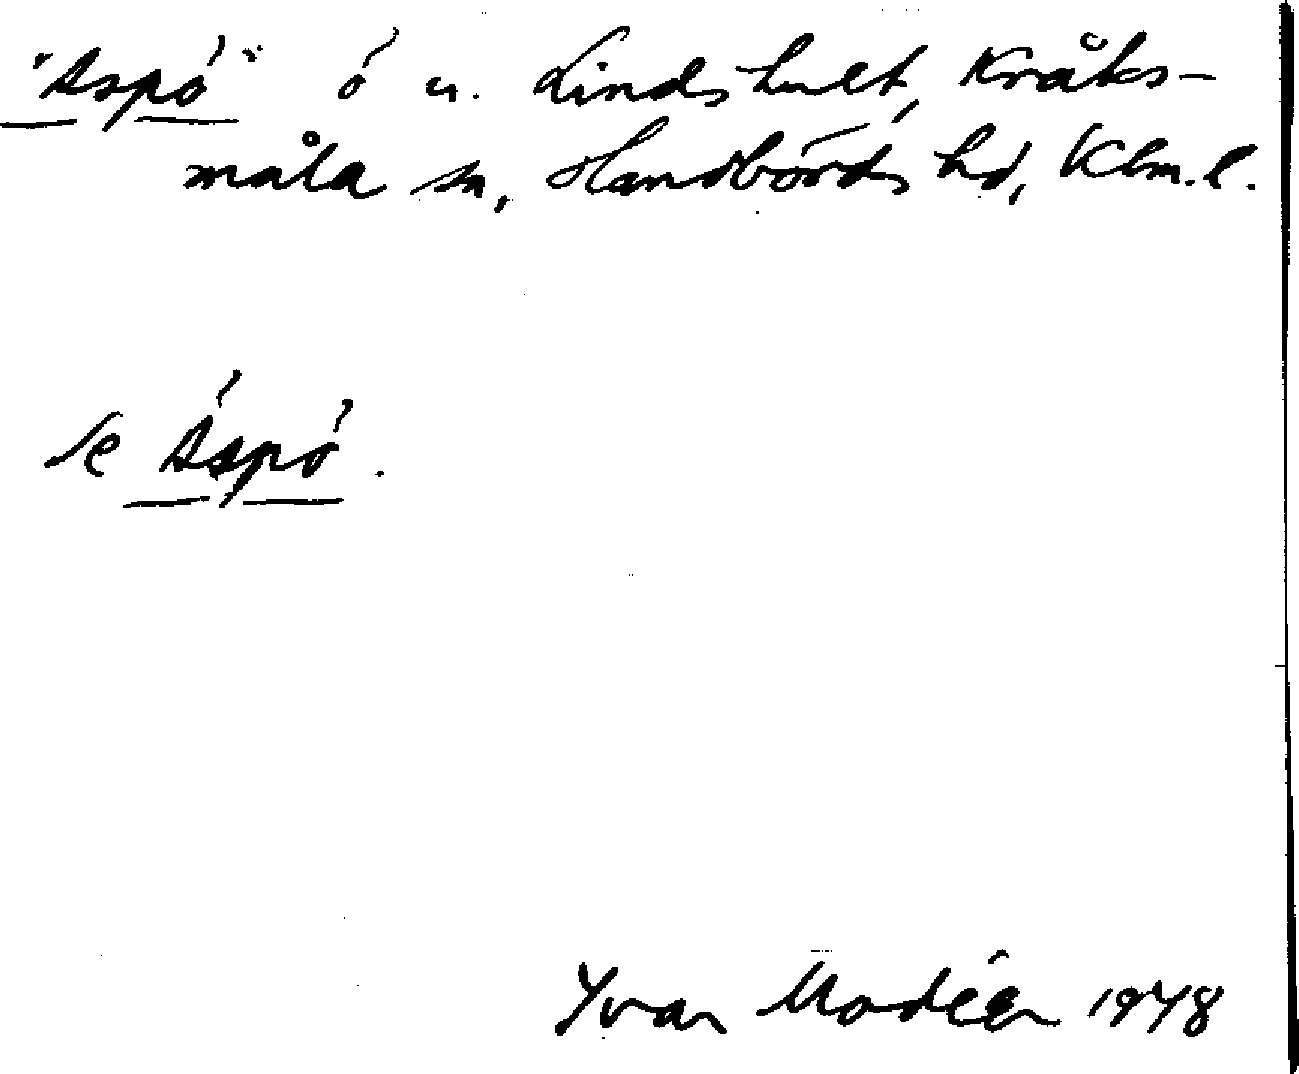 "Aspö" ö u. Lindshult, Kråks-
måla sn, Handbörds hd, Klm.l.
Se Äspö.
Ivar Modéer 1948